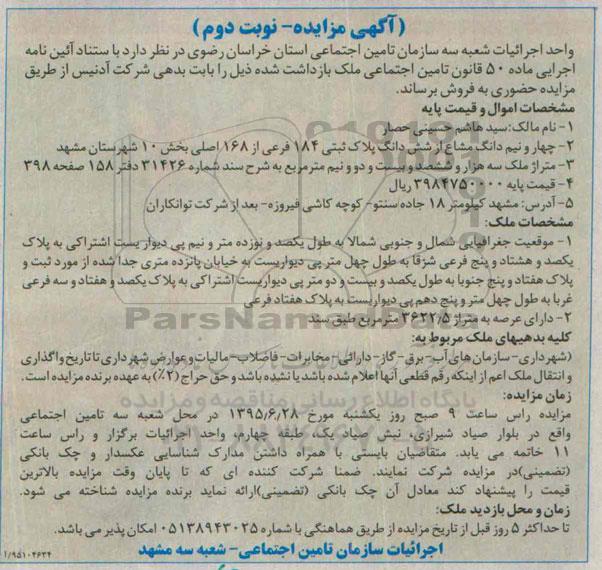 (آگهی مزایده- نوبت دوم)
واحد اجرائیات شعبه سه سازمان تامین اجتماعی استان خراسان رضوی در نظر دارد با ستناد آئین نامه
اجرایی ماده ۵۰ قانون تامین اجتماعی ملک بازداشت شده ذیل را بابت بدهی شرکت آدنیس از طریق
مزایده حضوری به فروش برساند.
مشخصات اموال و قیمت پایه
۱- نام مالک: سید هاشم حسینی حصار
۲- چهار و نیم دانگ مشاع از شش دانگ پلاک ثبتی ۱۸۴ فرعی از ۱۶۸ اصلی بخش ۱۰ شهرستان مشهد
۳- متراژ ملک سه هزار و ششصد و بیست و دو و نیم مترمربع به شرح سند شماره ۳۱۴۲۶ دفتر ۱۵۸ صفحه ۳۹۸
۴- قیمت پایه ۳۹۸۴۷۵۰۰۰۰ ریال
۵- آدرس: مشهد کیلومتر ۱۸ جاده سنتو- کوچه کاشی فیروزه- بعد از شرکت توانکاران
مشخصات ملک:
۱- موقعیت جغرافیایی شمال و جنوبی شمالا به طول یکصد و نوزده متر و نیم پی دیوار یست اشتراکی به پلاک
یکصد و هشتاد و پنج فرعی شرقا به طول چهل متر پی دیواریست به خیابان پانزده متری جدا شده از مورد ثبت و
پلاک هفتاد و پنج جنوبا به طول یکصد و بیست و دو متر پی دیواریست اشتراکی به پلاک یکصد و هفتاد و سه فرعی
غربا به طول چهل متر و پنج دهم پی دیواریست به پلاک هفتاد فرعی
۲- دارای عرصه به متراژ ۳۶۲۲٫۵ مترمربع طبق سند
کلیه بدهیهای ملک مربوط به:
(شهرداری- سازمان های آب- برق- گاز- دارائی- مخابرات- فاضلاب- مالیات و عوارض شهرداری تا تاریخ واگذاری
و انتقال ملک اعم از اینکه رقم قطعی آنها اعلام شده باشد یا نشده باشد و حق حراج (۲٪) به عهده برنده مزایده است.
زمان مزایده:
مزایده راس ساعت ۹ صبح روز یکشنبه مورخ ۱۳۹۵/۶/۲۸ در محل شعبه سه تامین اجتماعی
واقع در بلوار صیاد شیرازی، نبش صیاد یک، طبقه چهارم، واحد اجرائیات برگزار و راس ساعت
۱۱ خاتمه می یابد. متقاضیان بایستی با همراه داشتن مدارک شناسایی عکسدار و چک بانکی
(تضمینی)در مزایده شرکت نمایند. ضمنا شرکت کننده ای که تا پایان وقت مزایده بالاترین
قیمت را پیشنهاد کند معادل آن چک بانکی (تضمینی)ارائه نماید برنده مزایده شناخته می شود.
زمان و محل بازدید ملک:
تا حداکثر ۵ روز قبل از تاریخ مزایده از طریق هماهنگی با شماره ۰۵۱۳۸۹۴۳۰۲۵ امکان پذیر می باشد.
اجرائیات سازمان تامین اجتماعی- شعبه سه مشهد
۱/۹۵۱۰۴۶۳۴
ParsNamadData
پایگاه اطلاع رسانی مناقصه و مزایده